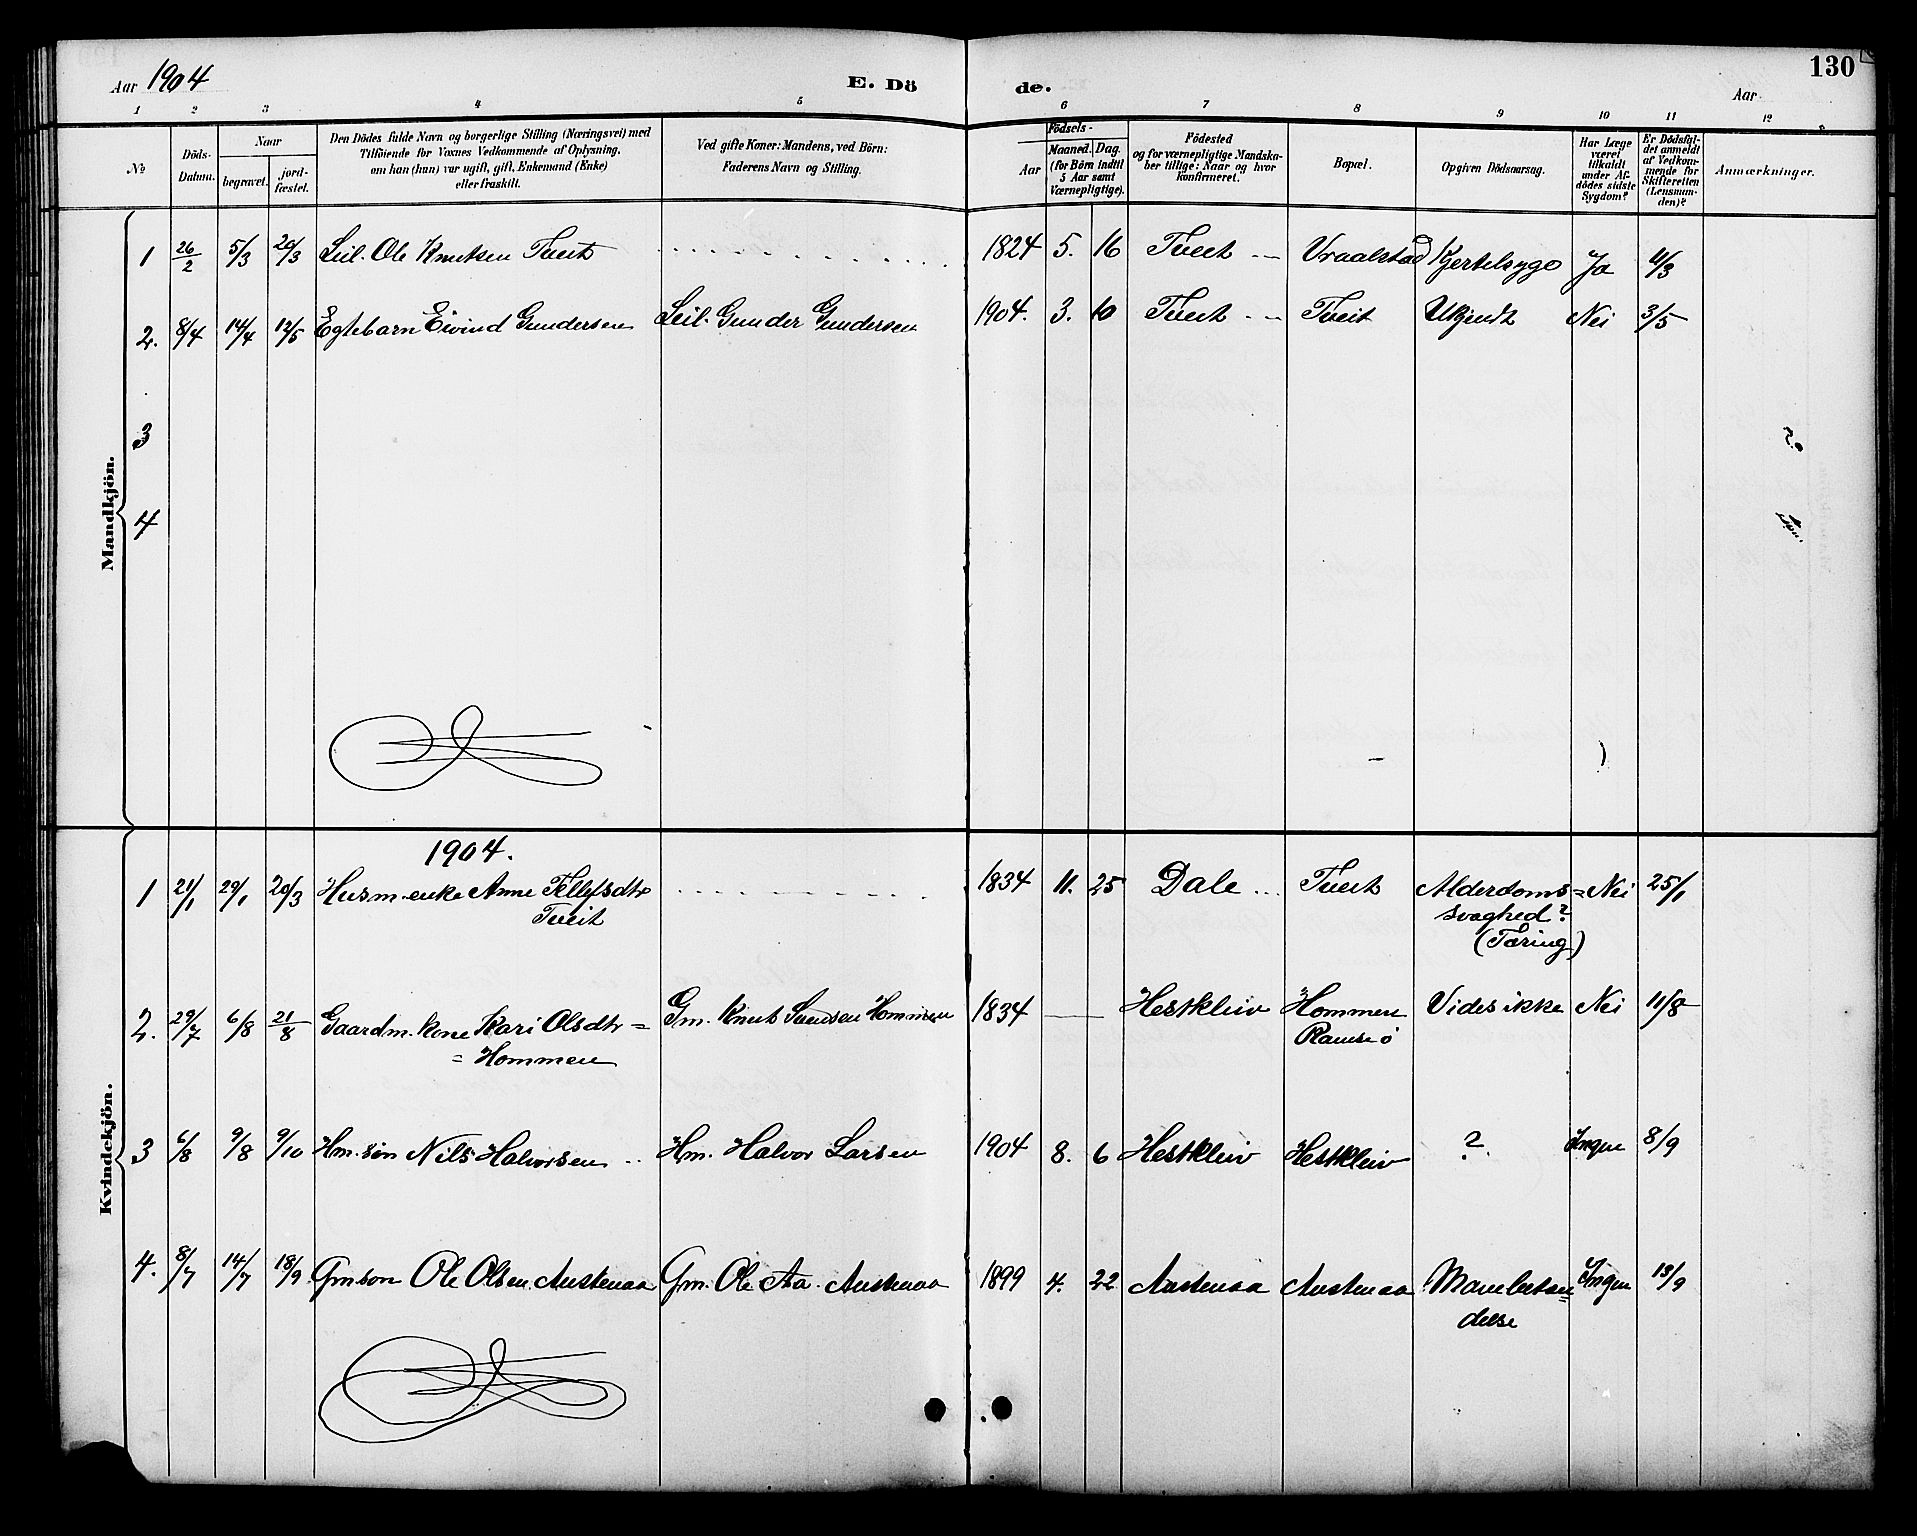 Aar 1904
E. Dö
de.
Aar
130
1 2 3 4 5 6 7 8 9 10 11 12
No
Döds-Datum.
Naar
begravet.
jord-fæstet.
Den Dödes fulde Navn og borgerlige Stilling (Næringsvei) med
Tilföiende for Voxnes Vedkommende af Oplysning,
om han (hun) var ugift, gift, Enkemand (Enke)
eller fraskilt.
Ved gifte Koner: Mandens, ved Börn:
Faderens Navn og Stilling.
Födsels-
Aar
Maaned. Dag.
(for Börn indtil
5 Aar samt
Værnepligtige).
Födested
og for værnepligtige Mandska-
ber tillige: Naar og hvor
konfirmeret.
Bopæl.
Opgiven Dödsaarsag.
Har Læge
været
tilkaldt
under Af-
dödes sidste
Sygdom?
Er Dödsfal-
det anmeldt
af Vedkom-
mende for
Skifteretten
(Lensman-
den)?
Anmærkninger.
Mandkjön.
1 26/2 5/3 20/3 Leil. Ole Knutsen Tveit 1824 5. 16 Tveit Vraalstad Kjertelsyge Ja 4/3
2. 8/4 14/4 12/5 Egtebarn Eivind Gundersen Leil. Gunder Gundersen 1904. 3. 10 Tveit Tveit Ukjendt Nei 3/5
3
4
Kvindekjön.
1904.
1 21/1 29/1 20/3 Husm. enke Anne Tellefsdtr 1834 11. 25 Dale Tveit Alderdoms= Nei 25/1
Tveit svaghed?
(Tæring)
2. 29/7 6/8 21/8 Gaardm. kone Kari Olsdtr= Gm. Knut Svendsen Hommen 1834 Hestkleiv Hommen Vides ikke Nei 11/8
=Hommen Ramsø
3 6/8 9/8 9/10 Hm. søn Nils Halvorsen Hm. Halvor Larsen 1904 8. 6 Hestkleiv Hestkleiv ? Ingen 8/9
4. 8/7 14/7 18/9 Gmsøn Ole Olsen Austenaa Gm. Ole Aa. Austenaa 1899 4. 22 Austenaa Austenaa Mavebetæn= Ingen 13/9
delse